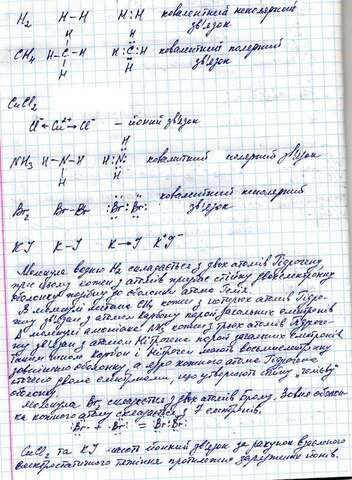 H₂ H – H H : H ковалентний неполярний
зв'язок
H H
CH₄ H – C – H H : C : H ковалентний полярний
зв'язок
H H
CuCl₂
Cl⁻ ← Cu²⁺ → Cl⁻ – йонний зв'язок
H
NH₃ H – N – H H : N : ковалитний полярний зв'язок
H H
ковалентний неполярний
Br₂ Br – Br : Br : Br : зв'язок
KI K – I K → I K⁺I⁻
Молекула водню H₂ складається з двох атомів Гідрогену
при цьому кожен з атомів придбає стійку двоелектронну
оболонку подібну до оболонки атома Гелія.
В молекулі метану CH₄ кожен з чотирьох атомів Гідро-
гену зв'язан з атомом Карбону парою загальних електронів
В молекулі аммоніаку NH₃ кожен з трьох атомів Гідроге-
ну зв'язан з атомом Нітрогена парой загальних електронів
Таким чином Карбон і Нітроген мають восьмиелектронну
зовнішню оболонку, а ядро кожного атома Гідрогена
оточено двома електронами, що утворюють стійку "гелієву"
оболонку.
Молекула Br₂ складається з двох атомів Брому. Зовнішня оболон-
ка кожного атому складається з 7 електронів.
: Br · + · Br : = : Br : Br :
CuCl₂ та KI мають йонний зв'язок за рахунок взаємного
електростатичного тяжіння протилежно заряджених йонів.